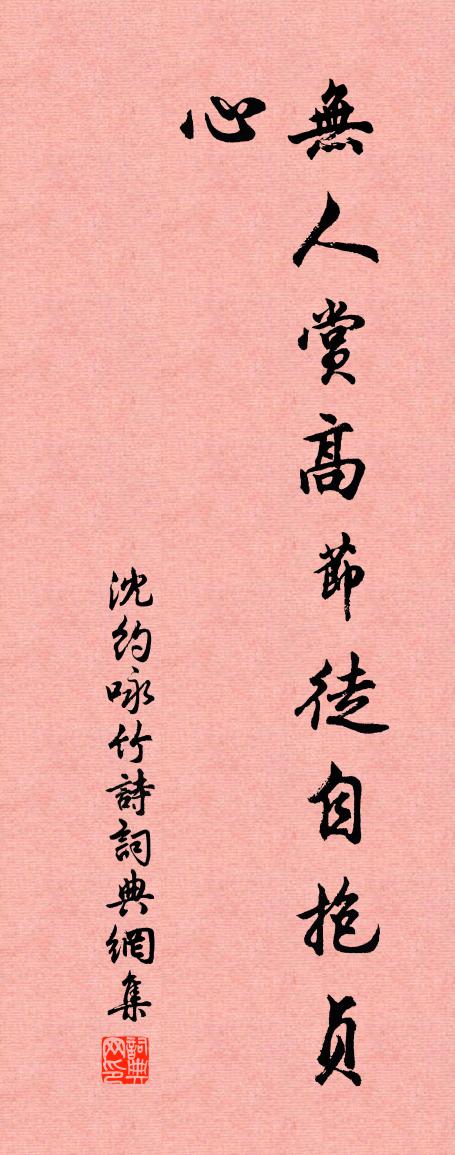 無人賞高節徒自抱貞
心
沈約咏竹詩詞典網集
詞典
网印